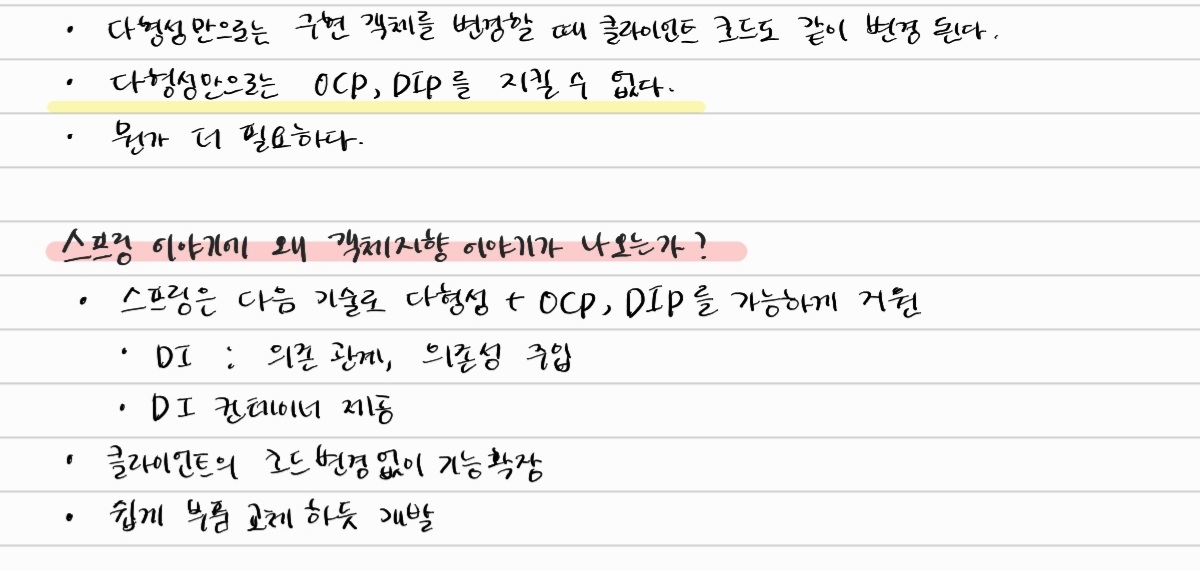 · 다형성만으로는 구현 객체를 변경할 때 클라이언트 코드도 같이 변경 된다.
· 다형성만으로는 OCP, DIP를 지킬 수 없다.
· 뭔가 더 필요하다.
스프링 이야기에 왜 객체지향 이야기가 나오는가?
· 스프링은 다음 기술로 다형성 + OCP, DIP를 가능하게 지원
· DI : 의존 관계, 의존성 주입
· DI 컨테이너 제공
· 클라이언트의 코드 변경 없이 기능 확장
· 쉽게 부품 교체 하듯 개발